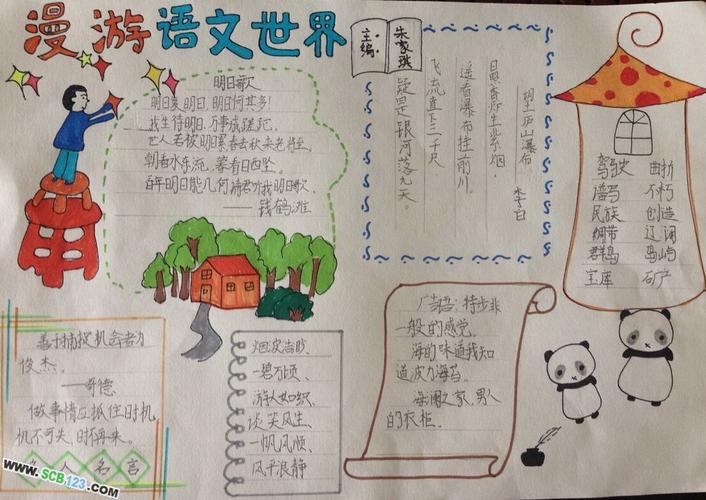 漫游语文世界
主编:
朱家琪
明日歌
明日复明日,明日何其多!
我生待明日,万事成蹉跎。
世人若被明日累春去秋来老将至。
朝看水东流,暮看日西坠。
百年明日能几何请君听我明日歌。
——钱鹤滩
望庐山瀑布
李白
日照香炉生紫烟,
遥看瀑布挂前川。
飞流直下三千尺
疑是银河落九天。
驾驶 曲折
谱写 不朽
民族 创造
绸带 辽阔
群岛 岛屿
宝库 矿产
善于捕捉机会者为
俊杰。
——哥德
做事情应抓住时机,
机不可失,时不再来。
名人名言
烟波浩眇、
一碧万顷、
游人如织、
谈笑风生、
一帆风顺、
风平浪静
广告语:特步非
一般的感觉。
海的味道我知
道波力海苔。
海澜之家,男人
的衣柜。
www.SCB123.com